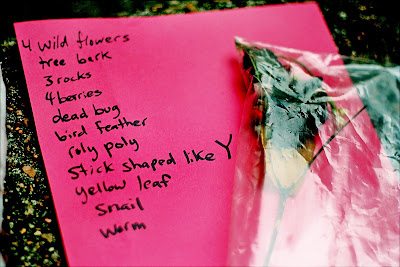 4 wild flowers
tree bark
3 rocks
4 berries
dead bug
bird feather
roly poly
stick shaped like Y
yellow leaf
snail
worm